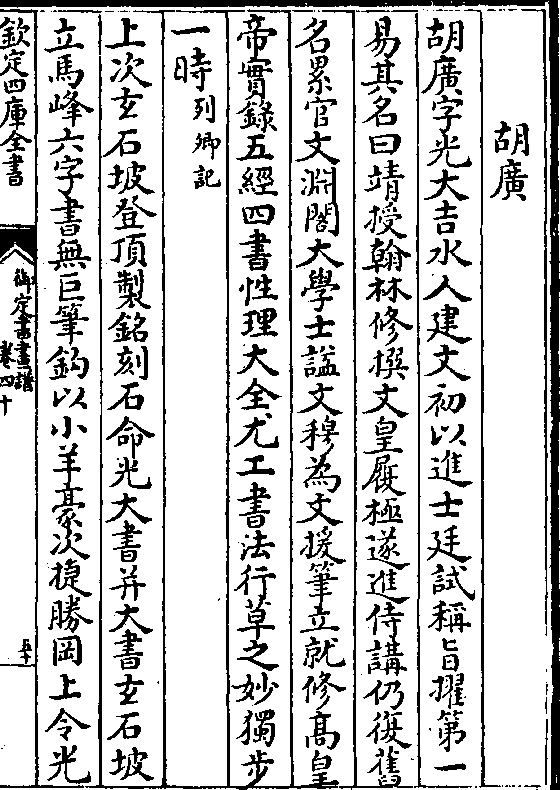 胡廣
胡廣字光大吉水人建文初以進士廷試稱旨擢第一
易其名曰靖授翰林修撰文皇履極遂進侍講仍復舊
名累官文淵閣大學士諡文穆為文援筆立就修髙皇
帝實錄五經四書性理大全尤工書法行草之妙獨步
一時列卿記
上次玄石坡登頂製銘刻石命光大書并大書玄石坡
立馬峰六字書無巨筆鈎以小羊豪次捷勝岡上令光
欽定四庫全書
御定書畫譜
卷四十
五十